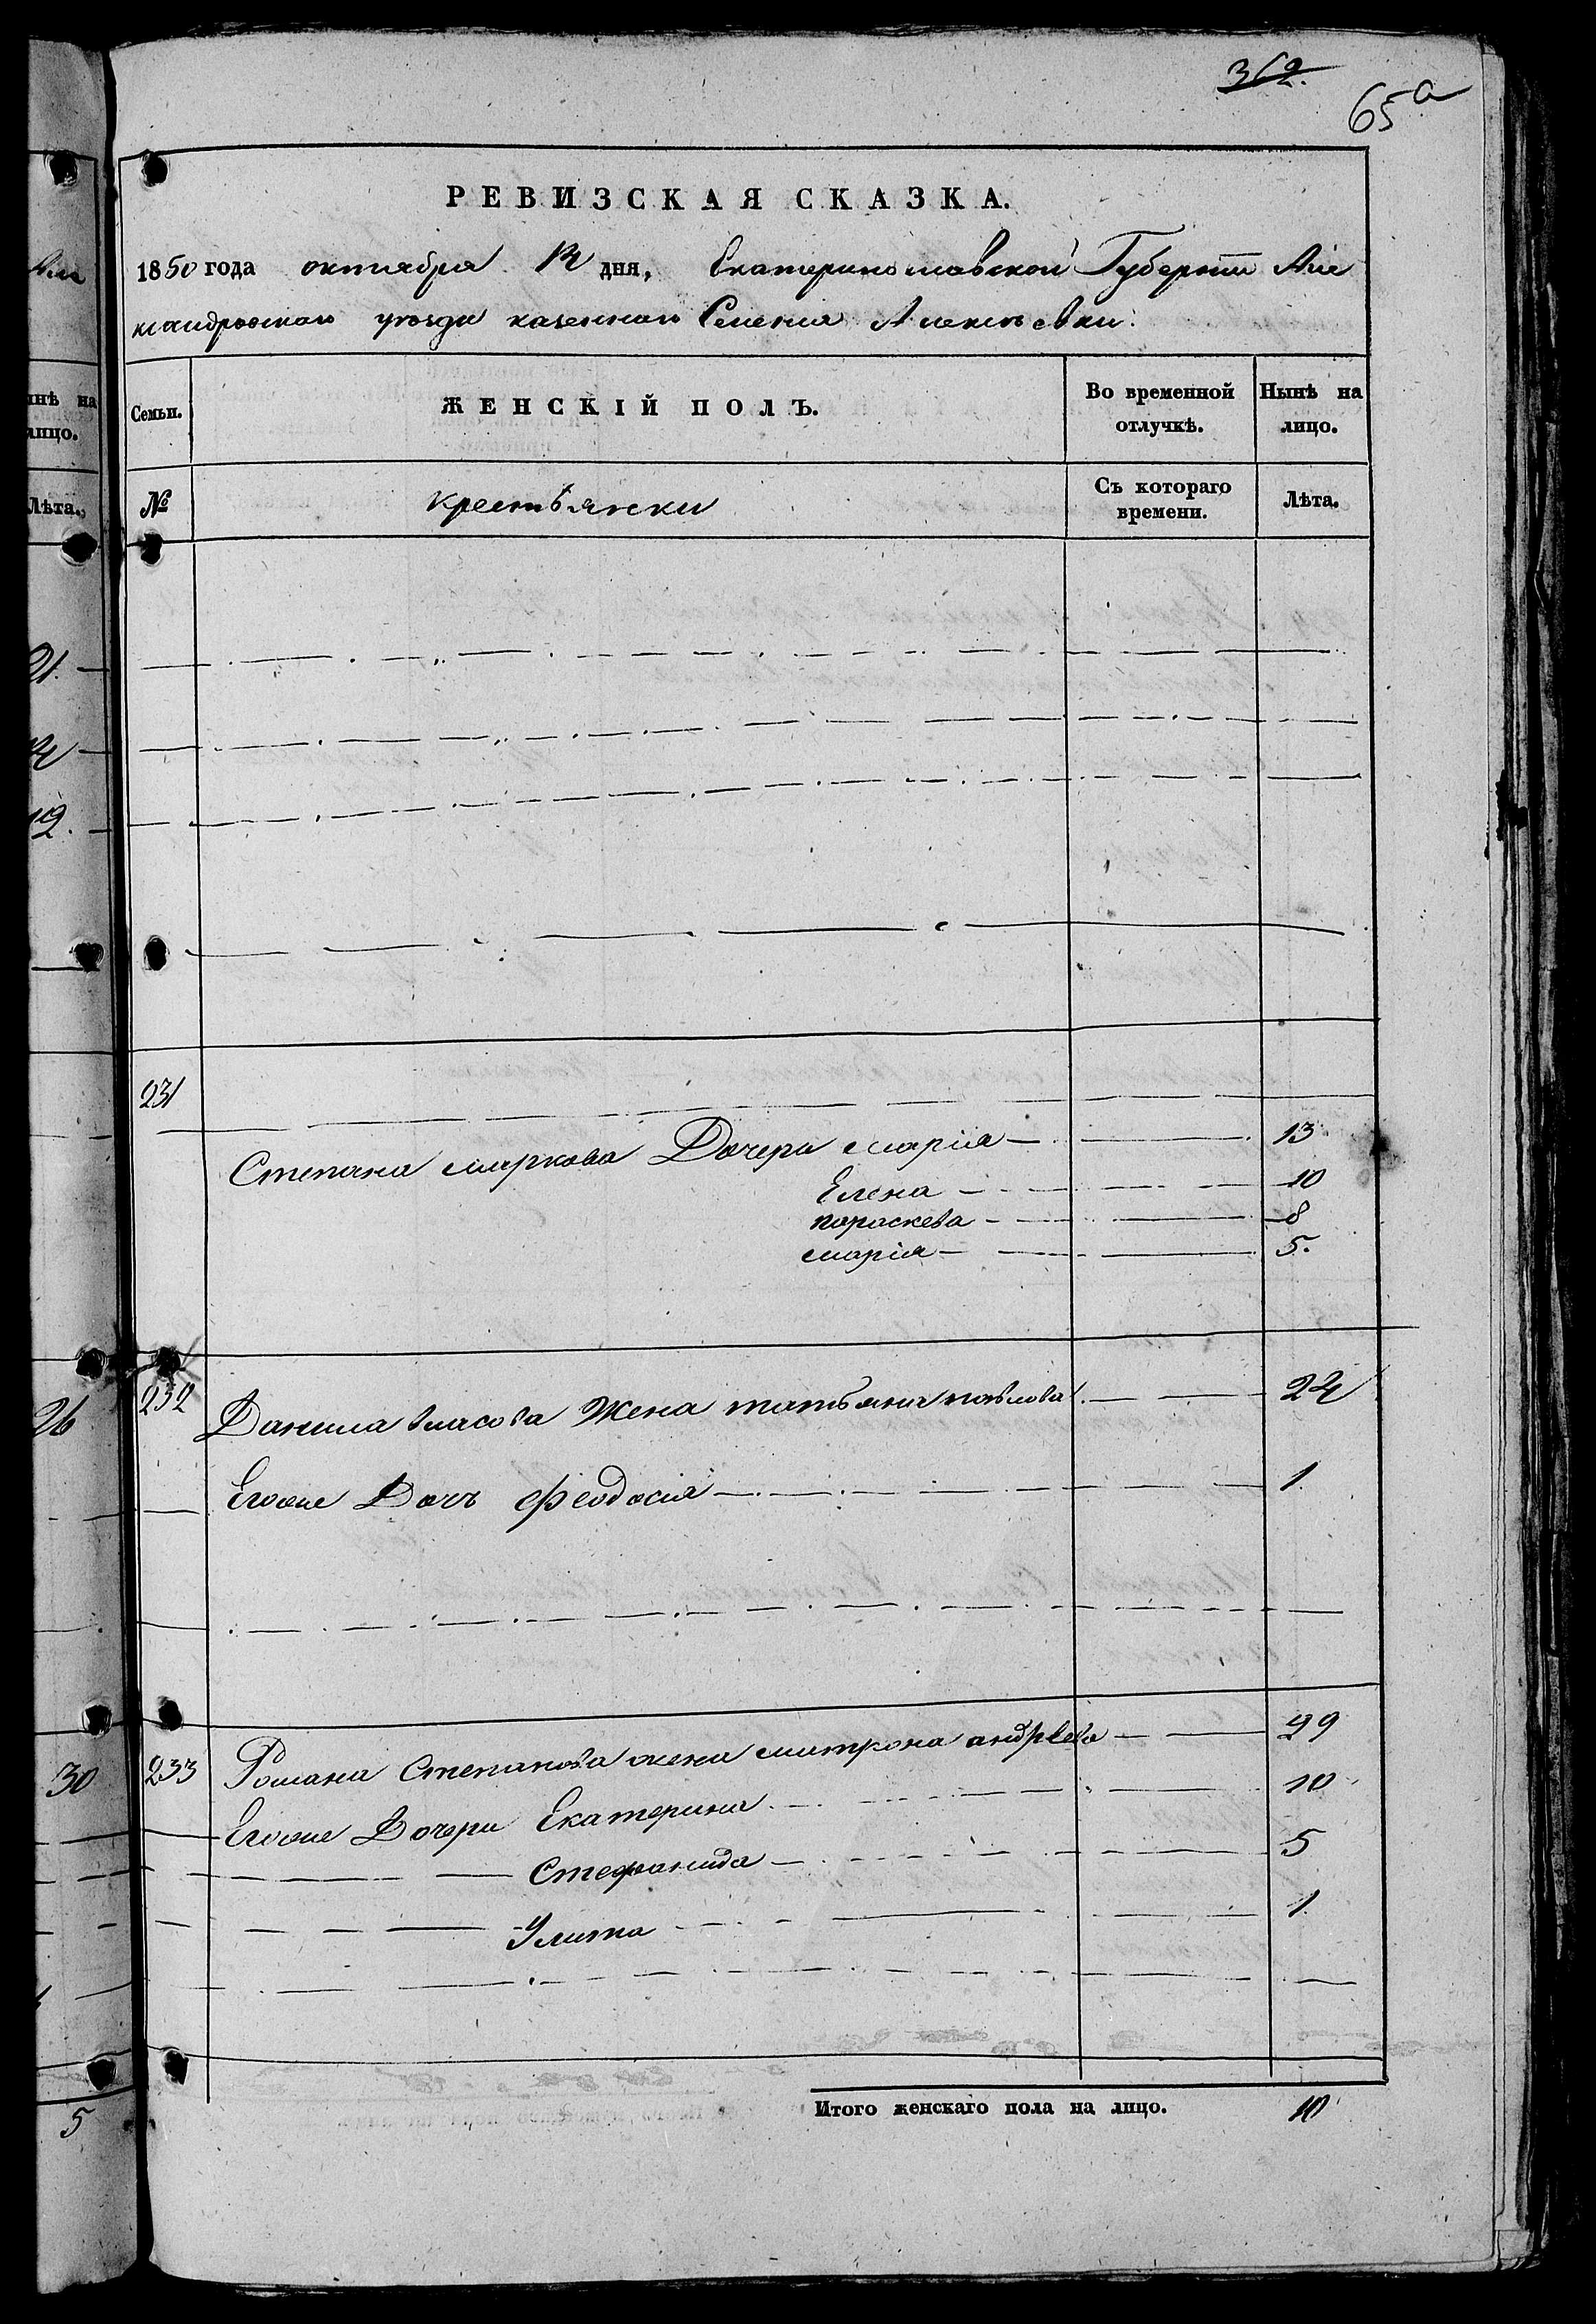 362.
65а
РЕВИЗСКАЯ СКАЗКА.
1850 года октября 14 дня, Екатеринославской Губерніи Але
ксандровскаго уезда казеннаго Селения Алексеевки.
Семьи.
ЖЕНСКІЙ ПОЛЪ.
Во временной отлучкѣ.
Нынѣ на лицо.
№
крестьянки
Съ котораго времени.
Лѣта.
231
Степана Маркова Дочери Марія 13
Елена 10
Пораскева 8
Марія 5.
232 Данила Власова Жена татьяна павлова 24
Егоже Дочъ Феодосия 1.
233 Романа Степанова жена матрона андреева 29
Егоже Дочери Екатерина 10
Стефанида 5
Улита 1.
Итого женскаго пола на лицо. 10
нѣ на
лицо.
Лѣта.
21.
19.
26
30
5